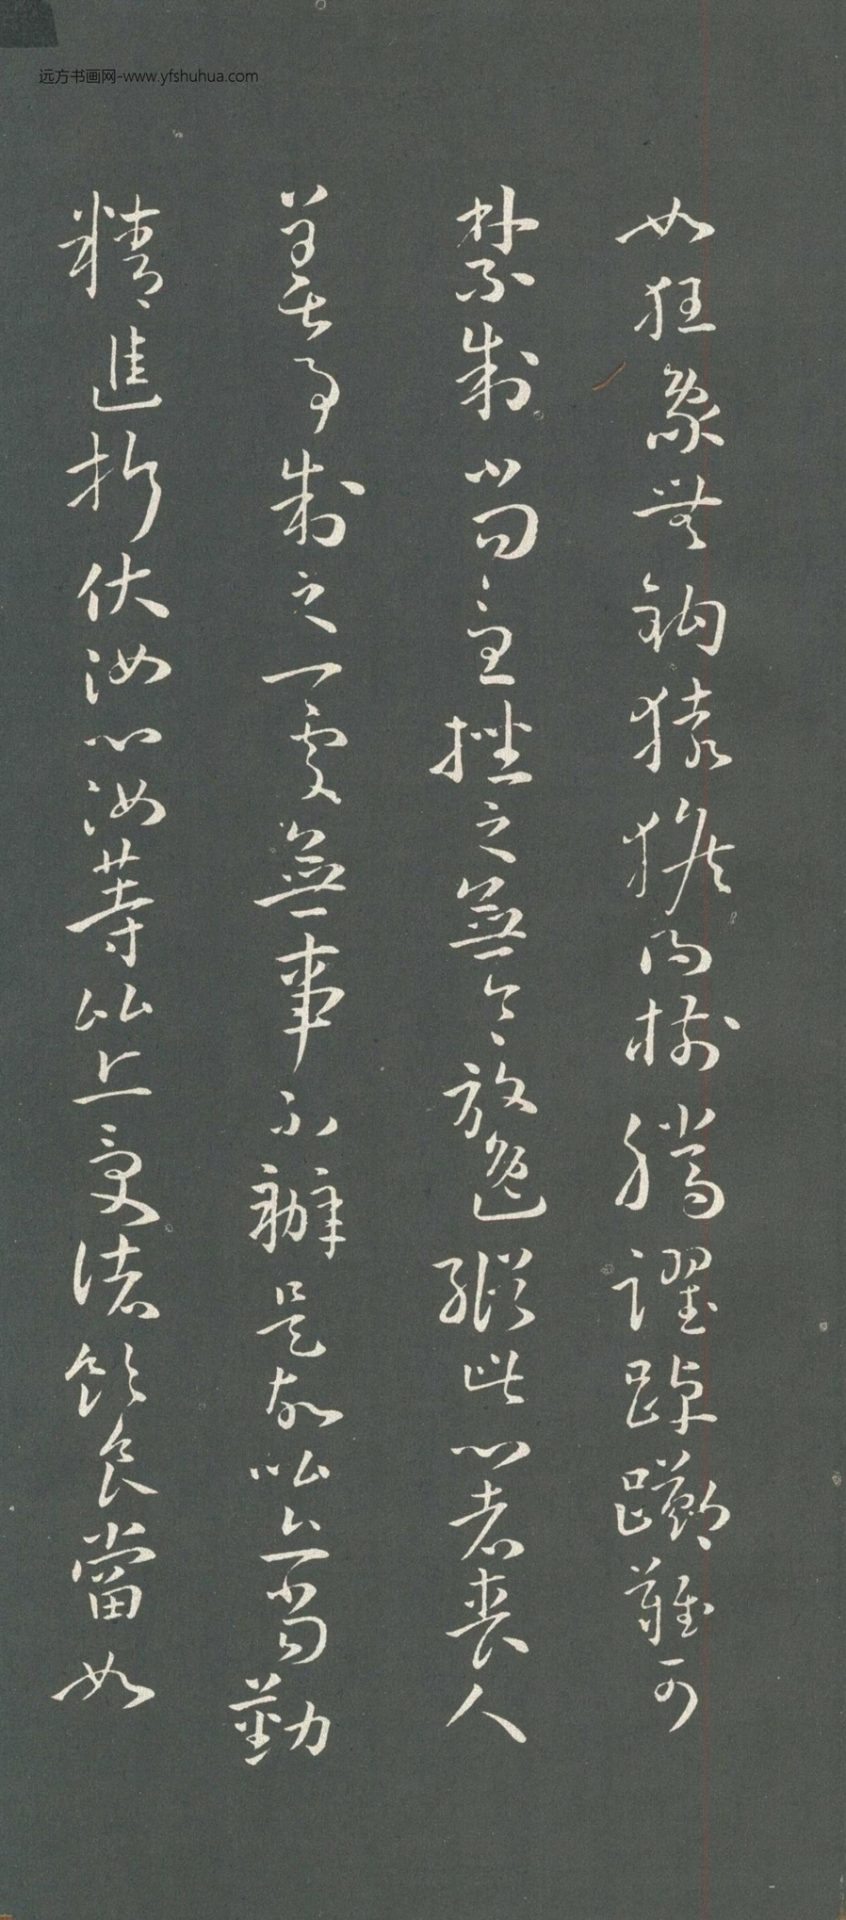 远方书画网-www.yfshuhua.com
如狂象無鈎猿猴得樹騰躍踔躑難可
禁制當急挫之無令放逸縱此心者喪人
善事制之一處無事不辦是故比丘當勤
精進折伏汝心汝等比丘受諸飲食當如